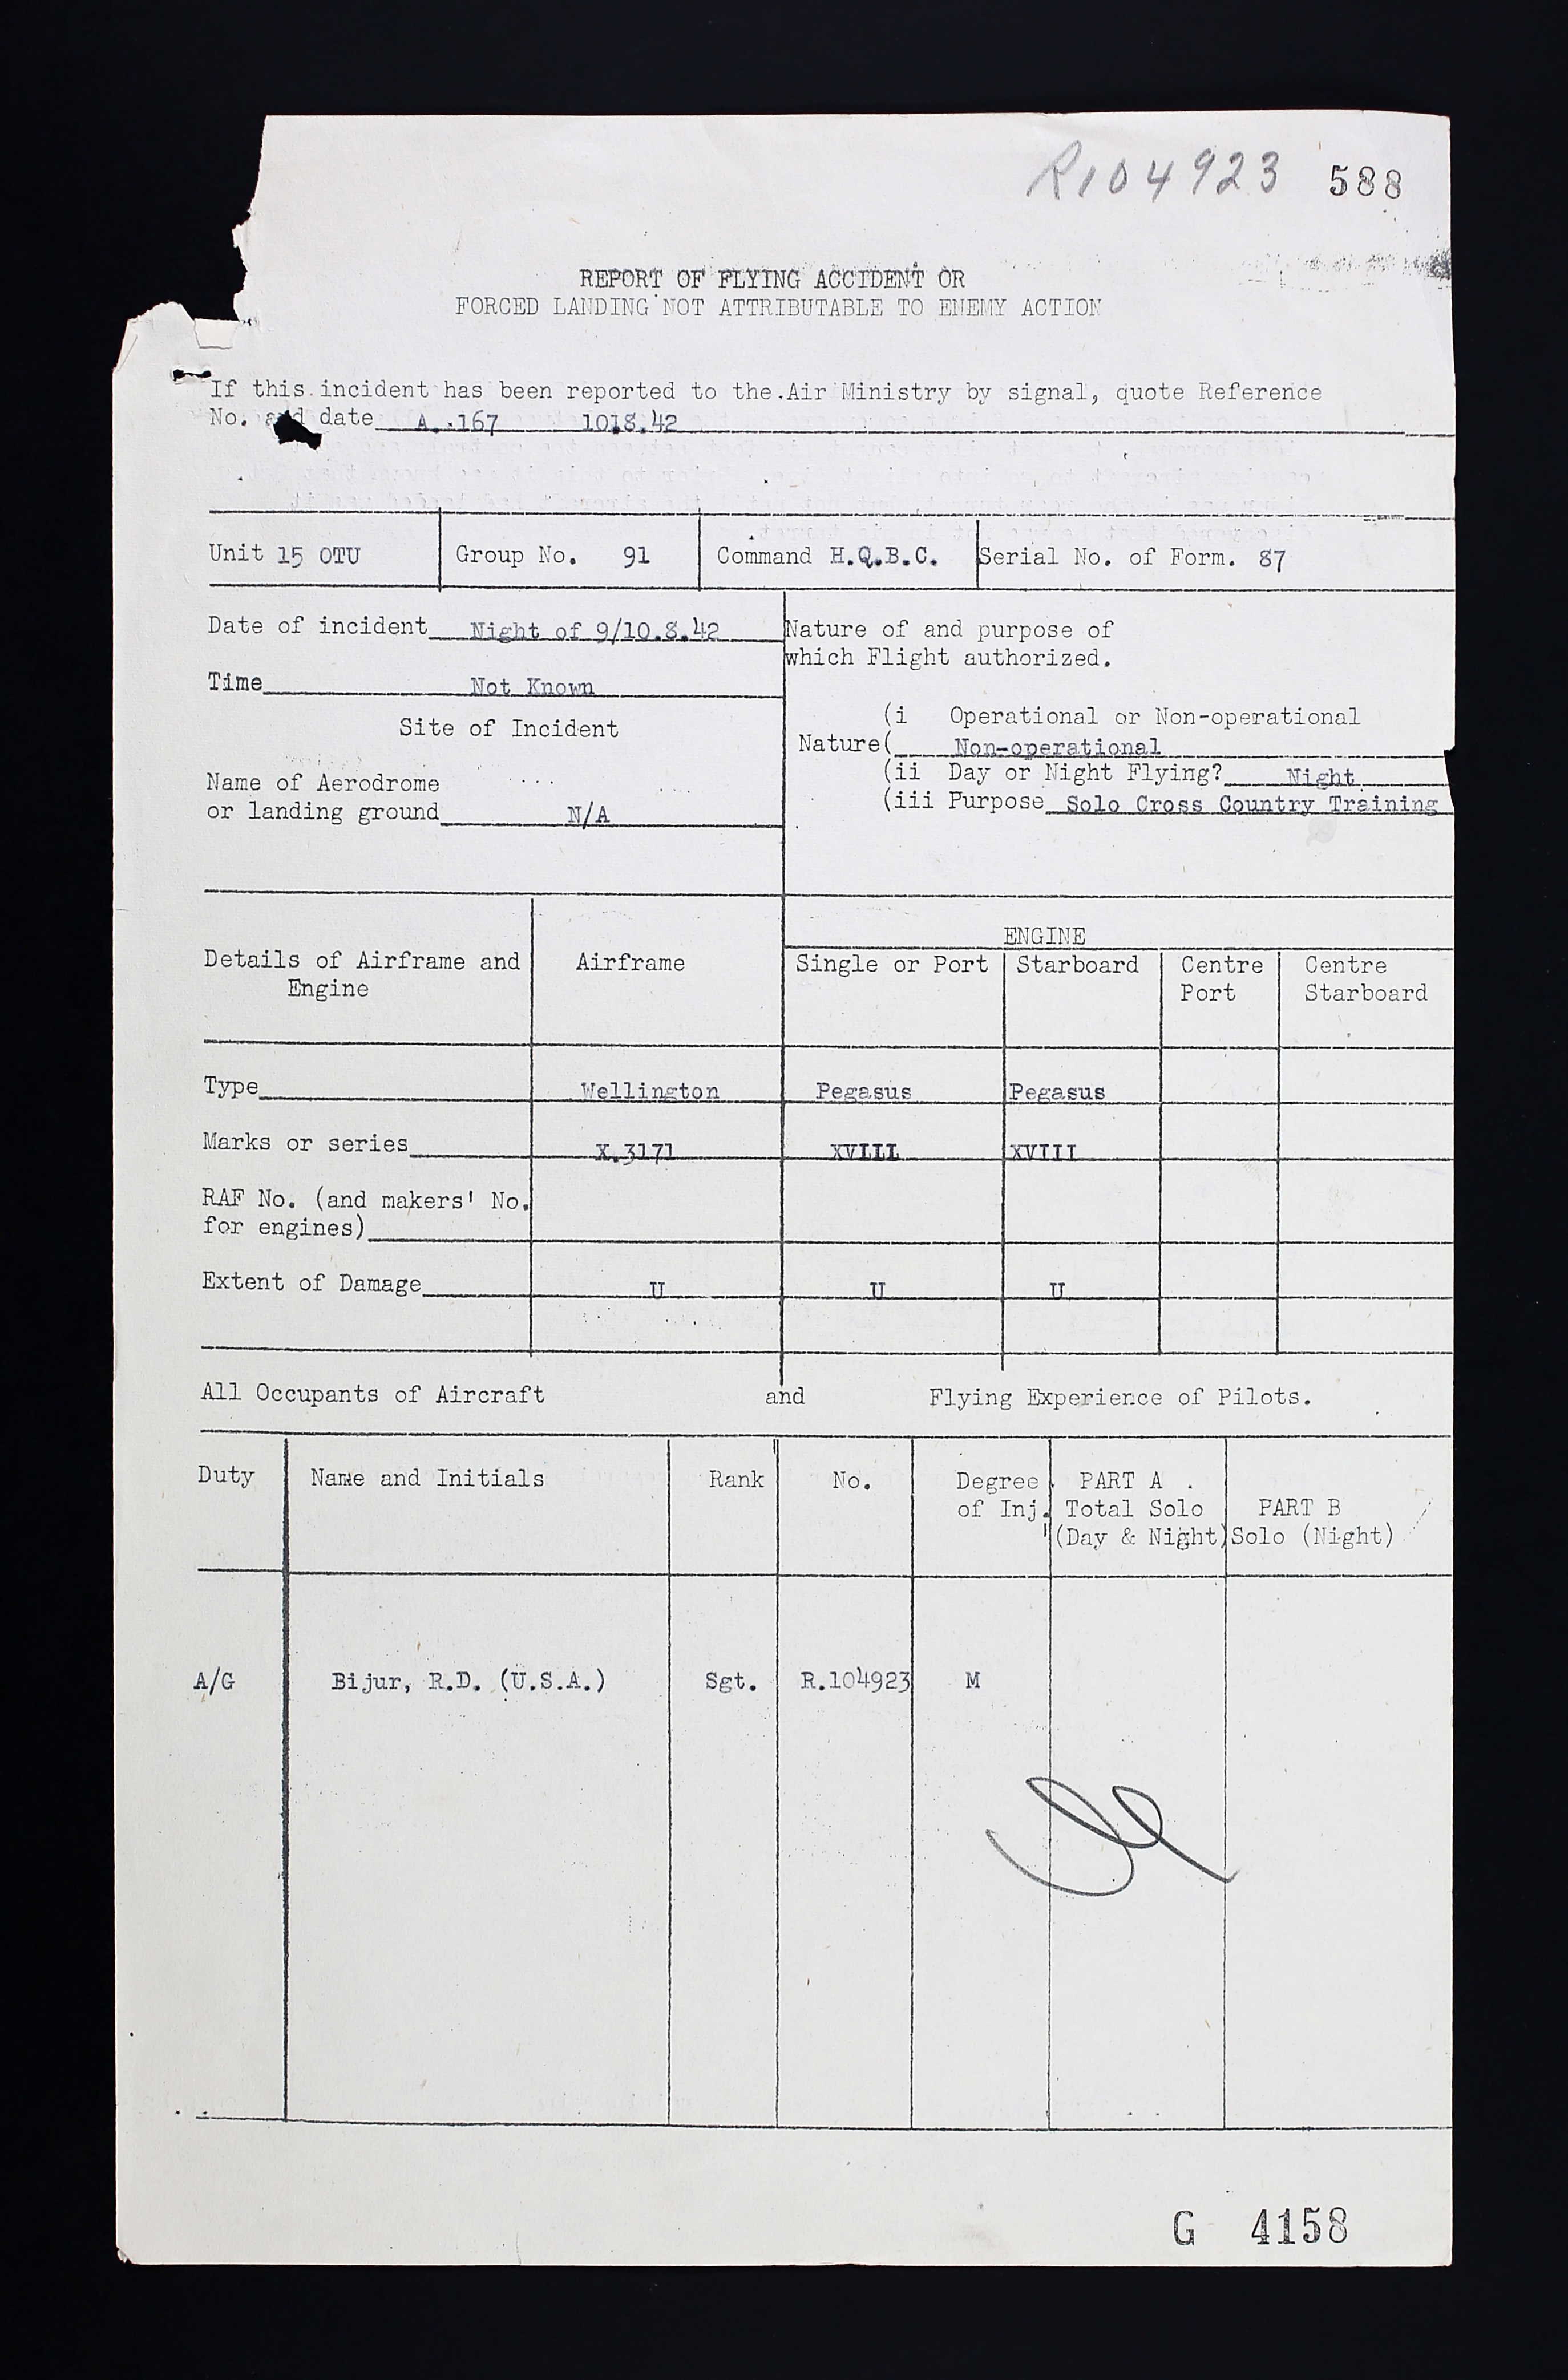 R104923 588
REPORT OF FLYING ACCIDENT OR
FORCED LANDING NOT ATTRIBUTABLE TO ENEMY ACTION
If this incident has been reported to the Air Ministry by signal, quote Reference
No. and date A. 167 10.8.42
Unit 15 OTU Group No. 91 Command H.Q.B.C. Serial No. of Form. 87
Date of incident Night of 9/10.8.42
Time Not Known
Site of Incident
Name of Aerodrome
or landing ground N/A
Nature of and purpose of
which Flight authorized.
(i Operational or Non-operational
Nature( Non-operational
(ii Day or Night Flying? Night
(iii Purpose Solo Cross Country Training
ENGINE
Details of Airframe and Airframe Single or Port Starboard Centre Centre
Engine Port Starboard
Type Wellington Pegasus Pegasus
Marks or series X.3171 XVIII XVIII
RAF No. (and makers' No.
for engines)
Extent of Damage U U U
All Occupants of Aircraft and Flying Experience of Pilots.
Duty Name and Initials Rank No. Degree PART A
of Inj. Total Solo PART B
(Day & Night) Solo (Night)
A/G Bijur, R.D. (U.S.A.) Sgt. R.104923 M
G 4158